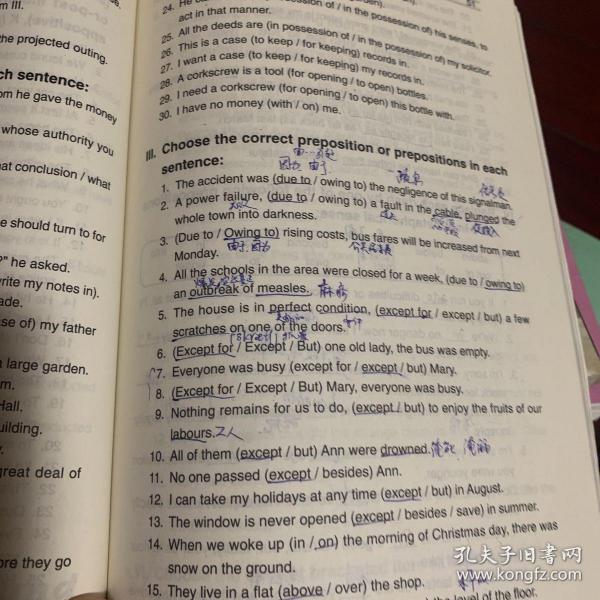 24. He
act in that manner.
25. All the deeds are (in possession of / in the possession of) my solicitor.
26. This is a case (to keep / for keeping) records in.
27. I want a case (to keep / for keeping) my records in.
28. A corkscrew is a tool (for opening / to open) bottles.
29. I need a corkscrew (for opening / to open) this bottle with.
30. I have no money (with / on) me.
III. Choose the correct preposition or prepositions in each
sentence:
因为 由于
1. The accident was (due to / owing to) the negligence of this signalman.
2. A power failure, (due to / owing to) a fault in the cable, plunged the
whole town into darkness.
3. (Due to / Owing to) rising costs, bus fares will be increased from next
Monday.
由于 因为
4. All the schools in the area were closed for a week, (due to / owing to)
an outbreak of measles. 麻疹
5. The house is in perfect condition, (except for / except / but) a few
scratches on one of the doors.
6. (Except for / Except / But) one old lady, the bus was empty.
7. Everyone was busy (except for / except / but) Mary.
8. (Except for / Except / But) Mary, everyone was busy.
9. Nothing remains for us to do, (except / but) to enjoy the fruits of our
labours. 工人
10. All of them (except / but) Ann were drowned.
11. No one passed (except / besides) Ann.
12. I can take my holidays at any time (except / but) in August.
13. The window is never opened (except / besides / save) in summer.
14. When we woke up (in / on) the morning of Christmas day, there was
snow on the ground.
15. They live in a flat (above / over) the shop.
the level of the floor.
m III.
the projected outing.
ch sentence:
om he gave the money
whose authority you
at conclusion / what
e should turn to for
?" he asked.
write my notes in).
ade.
se of) my father
a large garden.
m.
Hall.
uilding.
y.
great deal of
ore they go
孔夫子旧书网
www.kongfz.com